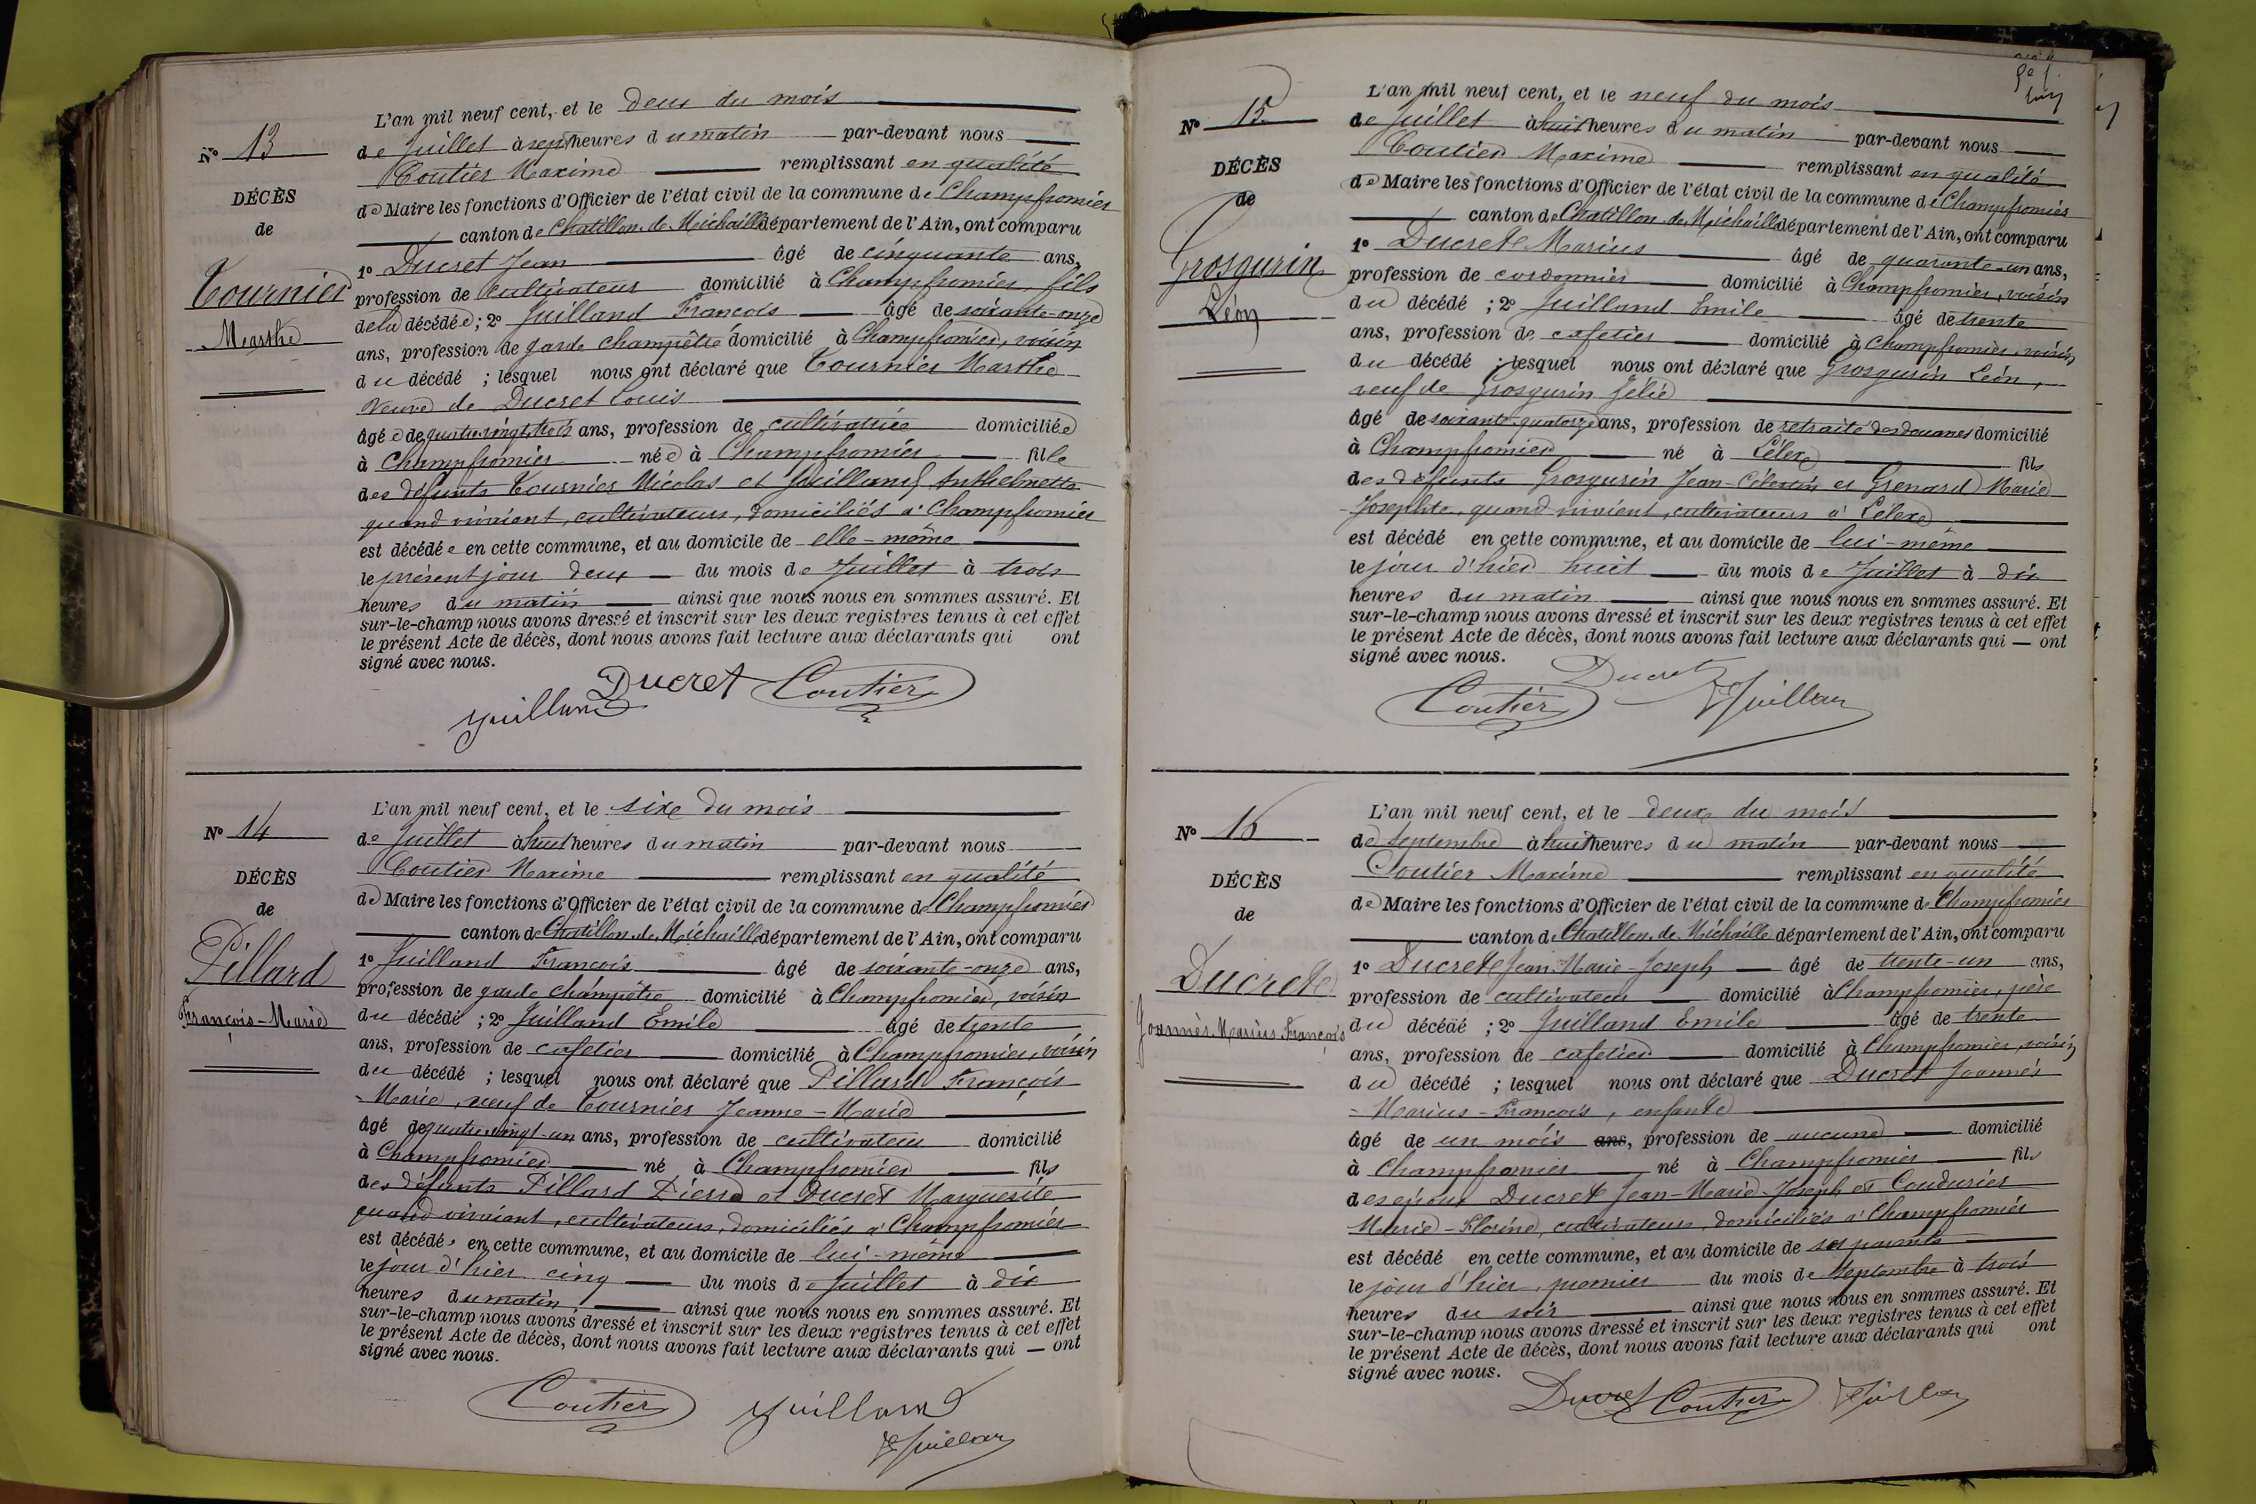 L'an mil neuf cent, et le deux du mois
N° 13
de Juillet à sept heures du matin par-devant nous
Coutier Maxime remplissant en qualité
DÉCÈS
de Maire les fonctions d'Officier de l'état civil de la commune de Champfromier
de
canton de Chatillon de Michaille département de l'Ain, ont comparu
1° Ducret Jean âgé de cinquante ans,
Tournier
profession de cultivateur domicilié à Champfromier, fils
de la décédée; 2° Juilland François âgé de soixante-onze
Marthe
ans, profession de garde champêtre domicilié à Champfromier, voisin
du décédé ; lesquel nous ont déclaré que Tournier Marthe
Veuve de Ducret Louis
âgée de quatre-vingt-trois ans, profession de cultivatrice domiciliée
à Champfromier née à Champfromier fille
des défunts Tournier Nicolas et Juilland Anthelmette
quand vivaient, cultivateurs, domiciliés à Champfromier
est décédée en cette commune, et au domicile de elle-même
le présent jour deux du mois de Juillet à trois
heures du matin ainsi que nous nous en sommes assuré. Et
sur-le-champ nous avons dressé et inscrit sur les deux registres tenus à cet effet
le présent Acte de décès, dont nous avons fait lecture aux déclarants qui ont
signé avec nous.
Ducret Coutier
Juilland
L'an mil neuf cent, et le six du mois
N° 14
de Juillet à huit heures du matin par-devant nous
Coutier Maxime remplissant en qualité
DÉCÈS
de Maire les fonctions d'Officier de l'état civil de la commune de Champfromier
de
canton de Chatillon de Michaille département de l'Ain, ont comparu
1° Juilland François âgé de soixante-onze ans,
Pillard
profession de garde champêtre domicilié à Champfromier, voisin
François-Marie
du décédé ; 2° Juilland Emile âgé de trente
ans, profession de cafetier domicilié à Champfromier, voisin
du décédé ; lesquel nous ont déclaré que Pillard François
-Marie, veuf de Tournier Jeanne-Marie
âgé de quatre-vingt-un ans, profession de cultivateur domicilié
à Champfromier né à Champfromier fils
des défunts Pillard Pierre et Ducret Marguerite
quand vivaient, cultivateurs, domiciliés à Champfromier
est décédé en cette commune, et au domicile de lui-même
le jour d'hier cinq du mois de Juillet à dix
heures du matin ainsi que nous nous en sommes assuré. Et
sur-le-champ nous avons dressé et inscrit sur les deux registres tenus à cet effet
le présent Acte de décès, dont nous avons fait lecture aux déclarants qui ont
signé avec nous.
Coutier Juilland
Juilland
L'an mil neuf cent, et le neuf du mois
N° 15
de Juillet à huit heures du matin par-devant nous
Coutier Maxime remplissant en qualité
DÉCÈS
de Maire les fonctions d'Officier de l'état civil de la commune de Champfromier
de
canton de Chatillon de Michaille département de l'Ain, ont comparu
1° Ducret Marius âgé de quarante-un ans,
Grosgurin
profession de cordonnier domicilié à Champfromier, voisin
Léon
du décédé ; 2° Juilland Emile âgé de trente
ans, profession de cafetier domicilié à Champfromier, voisin
du décédé ; lesquel nous ont déclaré que Grosgurin Léon,
veuf de Grosgurin
âgé de soixante-quatorze ans, profession de retraité des douanes domicilié
à Champfromier né à Lélex fils
des défunts Grosgurin Jean-Célestin et Grenard Marie
-Josephte, quand vivaient, cultivateurs à Lélex
est décédé en cette commune, et au domicile de lui-même
le jour d'hier huit du mois de Juillet à dix
heures du matin ainsi que nous nous en sommes assuré. Et
sur-le-champ nous avons dressé et inscrit sur les deux registres tenus à cet effet
le présent Acte de décès, dont nous avons fait lecture aux déclarants qui ont
signé avec nous.
Ducret
Coutier Juilland
L'an mil neuf cent, et le deux du mois
N° 16
de septembre à huit heures du matin par-devant nous
Coutier Maxime remplissant en qualité
DÉCÈS
de Maire les fonctions d'Officier de l'état civil de la commune de Champfromier
de
canton de Chatillon de Michaille département de l'Ain, ont comparu
1° Ducret Jean-Marie-Joseph âgé de trente-un ans,
Ducret
profession de cultivateur domicilié à Champfromier, père
Joannès Marius François
du décédé ; 2° Juilland Emile âgé de trente
ans, profession de cafetier domicilié à Champfromier, voisin
du décédé ; lesquel nous ont déclaré que Ducret Joannès
-Marius-François, enfant
âgé de un mois ans, profession de aucune domicilié
à Champfromier né à Champfromier fils
des époux Ducret Jean-Marie-Joseph et Coudurier
Marie-Florine, cultivateurs, domiciliés à Champfromier
est décédé en cette commune, et au domicile de ses parents
le jour d'hier, premier du mois de Septembre à trois
heures du soir ainsi que nous nous en sommes assuré. Et
sur-le-champ nous avons dressé et inscrit sur les deux registres tenus à cet effet
le présent Acte de décès, dont nous avons fait lecture aux déclarants qui ont
signé avec nous.
Ducret Coutier Juilland